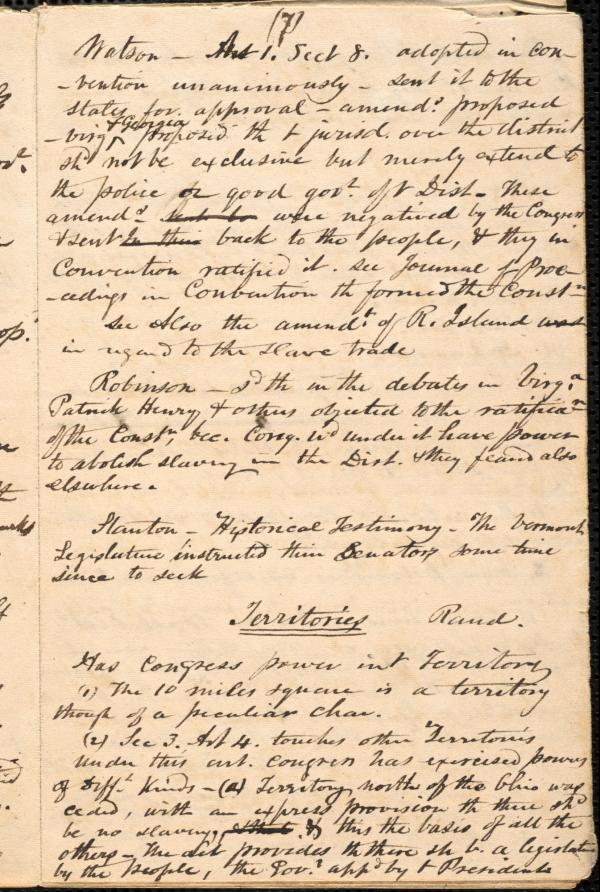 (7)
Watson – Art 1. Sect 8. adopted in con-
-vention unanimously – sent it to the
states for approval – amend.s proposed
–Virg. & Georgia proposed th t jurisd. over the district
shd not be exclusive but merely extend to
the police or good govt. of t Dist – These
amend.s were negatived by the Congress
& sent back to the people, & they in
Convention ratified it. see Journal of Proce-
-edings in Convention th formed the Constn–
See Also the amendt. of R. Island
in regard to the slave trade
Robinson – sd th in the debates in Virg.a
Patrick Henry & others objected to the ratifican
of the Constn, bec. Cong. wd under it have power
to abolish slavery in the Dist. & they feared also
elsewhere.
Stanton – Historical Testimony – The Vermont
Legislature instructed their Senators some time
since to seek
Territories Rand.
Has Congress power in t Territory
(1) The 10 miles square is a territory
though of a peculiar char.
(2) Sec 3. Art 4. touches other Territories
under this art. Congress has exercised powers
of Difft Kinds – (a) Territory north of the Ohio was
ceded, with an express provision th there shd
be no slavery, & this the basis of all the
others – The act provides th there sh b. a legislature
by the people, the Gov.r appd by t President